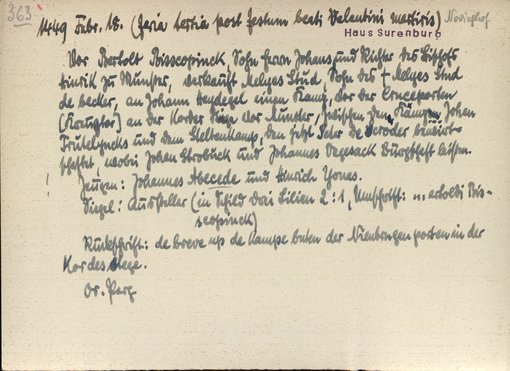 363
1449 Febr. 18. (feria tertia post festum beati Valentini martiris)
Haus Surenburg
Vor Bertolt Bisscopinck, Sohn Herrn Johans und Richter des Bischofs
Hinrik zu Munster, verkauft Melges Stud Sohn des † Melges Stud
de becker, an Johann Heydegel einen Kamp, vor der Crucesporten
(Kreuztor) an der Kordes Stege vor Munster, zwischen den Kämpen Johan
und dem Geltenkamp, den jetzt Peter de Scroder bewirt-
schaftet, wobei Johan Strobuck und Johannes Vegesack Bürgschaft leisten.
! Zeugen: Johannes Abecede und Hinrich Yonas.
Siegel: Aussteller (in Schild drei Lilien 2:1, Umschrift: ... ertoldi Bis-
scopinck)
Rückschrift: de breve up de Kampe buten der Nienbrogen porten in der
Kordes stege.
Or. Perg.